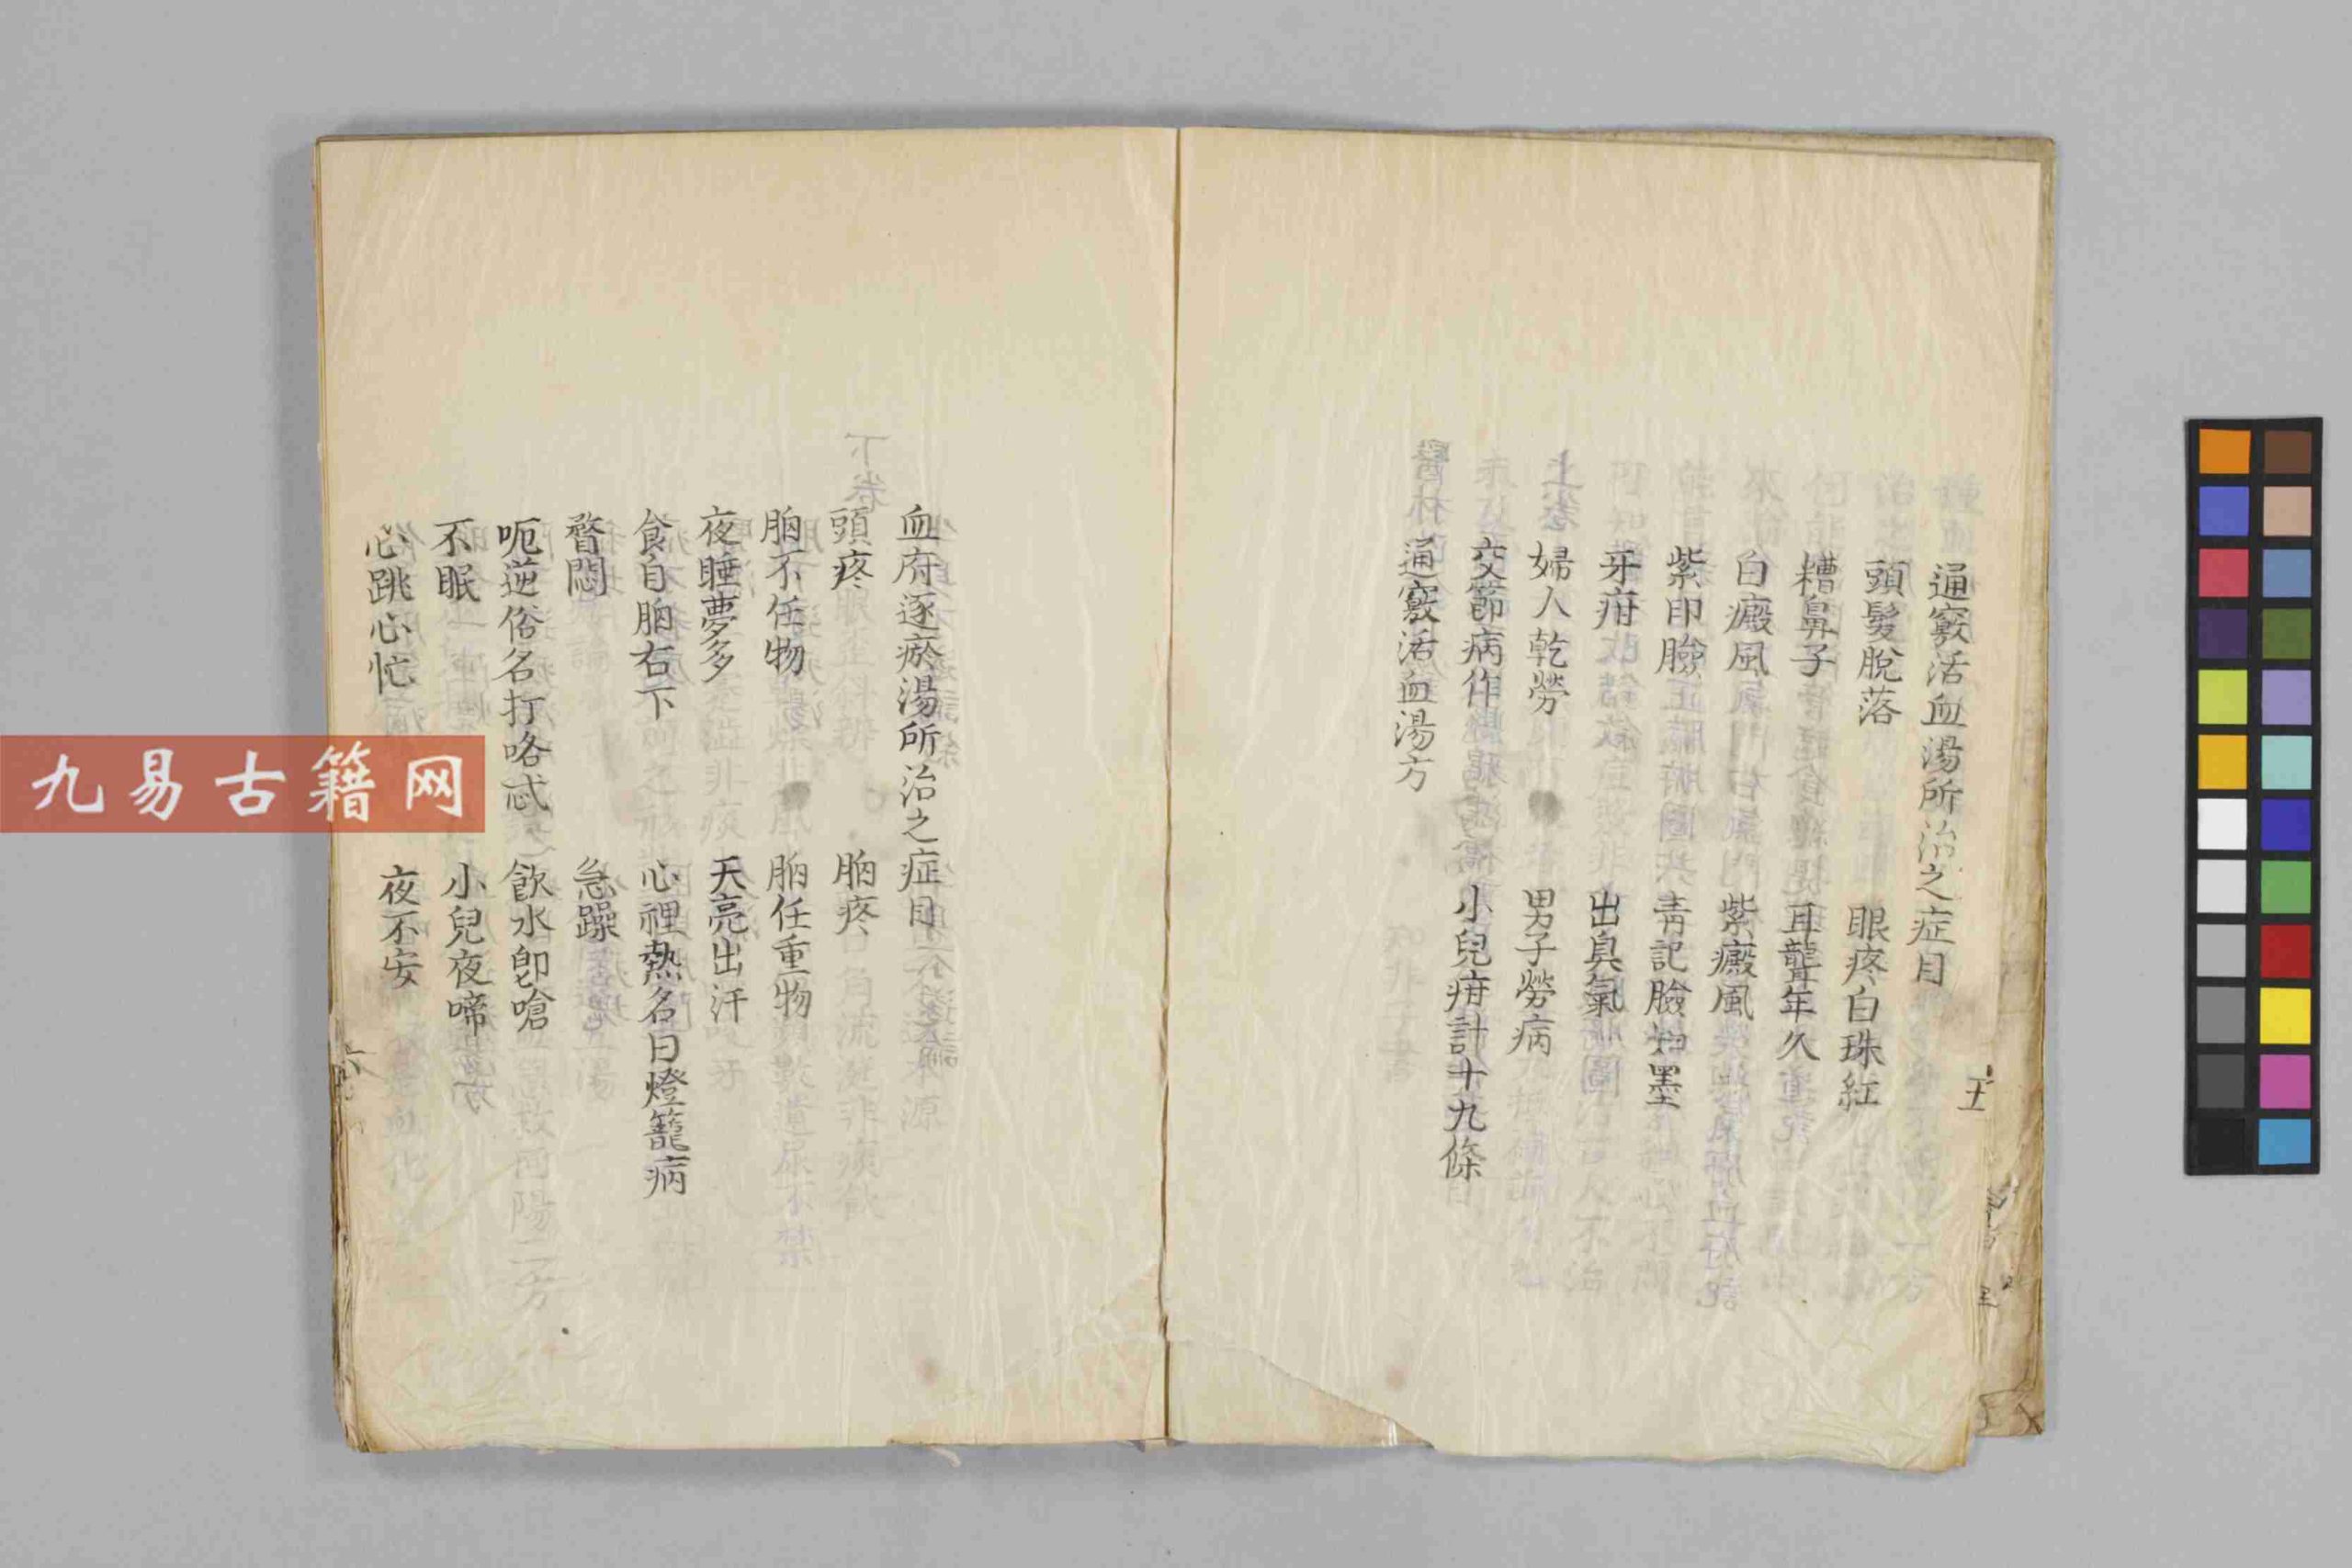 通竅活血湯所治之症目
頭髮脫落 眼疼白珠紅
糟鼻子 耳聾年久
白癜風 紫癜風
紫印臉 青記臉如墨
牙疳 出臭氣
婦人乾勞 男子勞病
交節病作 小兒疳計十九條
通竅活血湯方
血府逐瘀湯所治之症目
頭疼 胸疼
胸不任物 胸任重物
夜睡夢多 天亮出汗
食自胸右下 心裡熱名曰燈籠病
瞀悶 急躁
呃逆俗名打咯忒 飲水卽嗆
不眠 小兒夜啼
心跳心忙 夜不安
九易古籍网